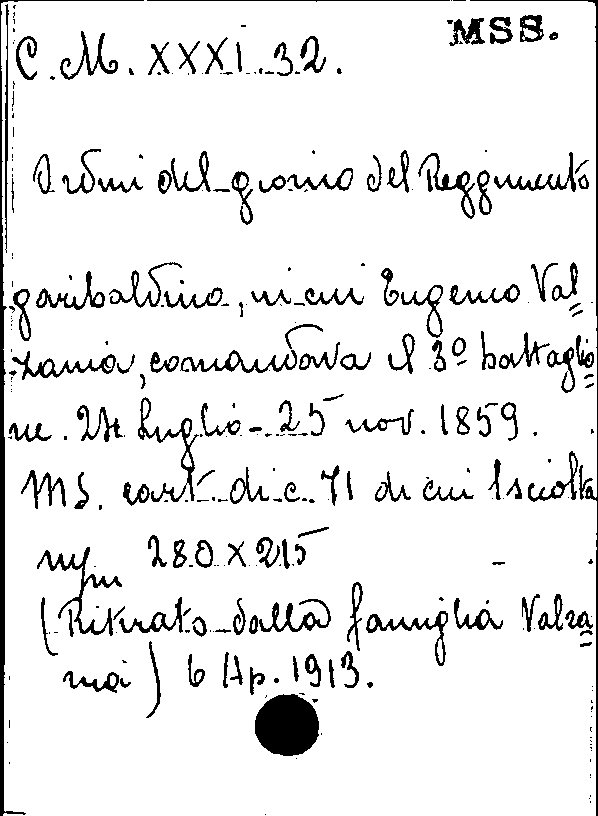 MSS.
C. M. XXXI. 32.
Ordini del giorno del Reggimento
garibaldino, in cui Eugenio Val=
zania, comandava il 3º battaglio=
ne. 24 Luglio - 25 nov. 1859.
MS. cart. di c. 71 di cui 1 sciolta
mm 280 x 215
(Ritirato dalla famiglia Valza=
nia) 6 Ap. 1913.